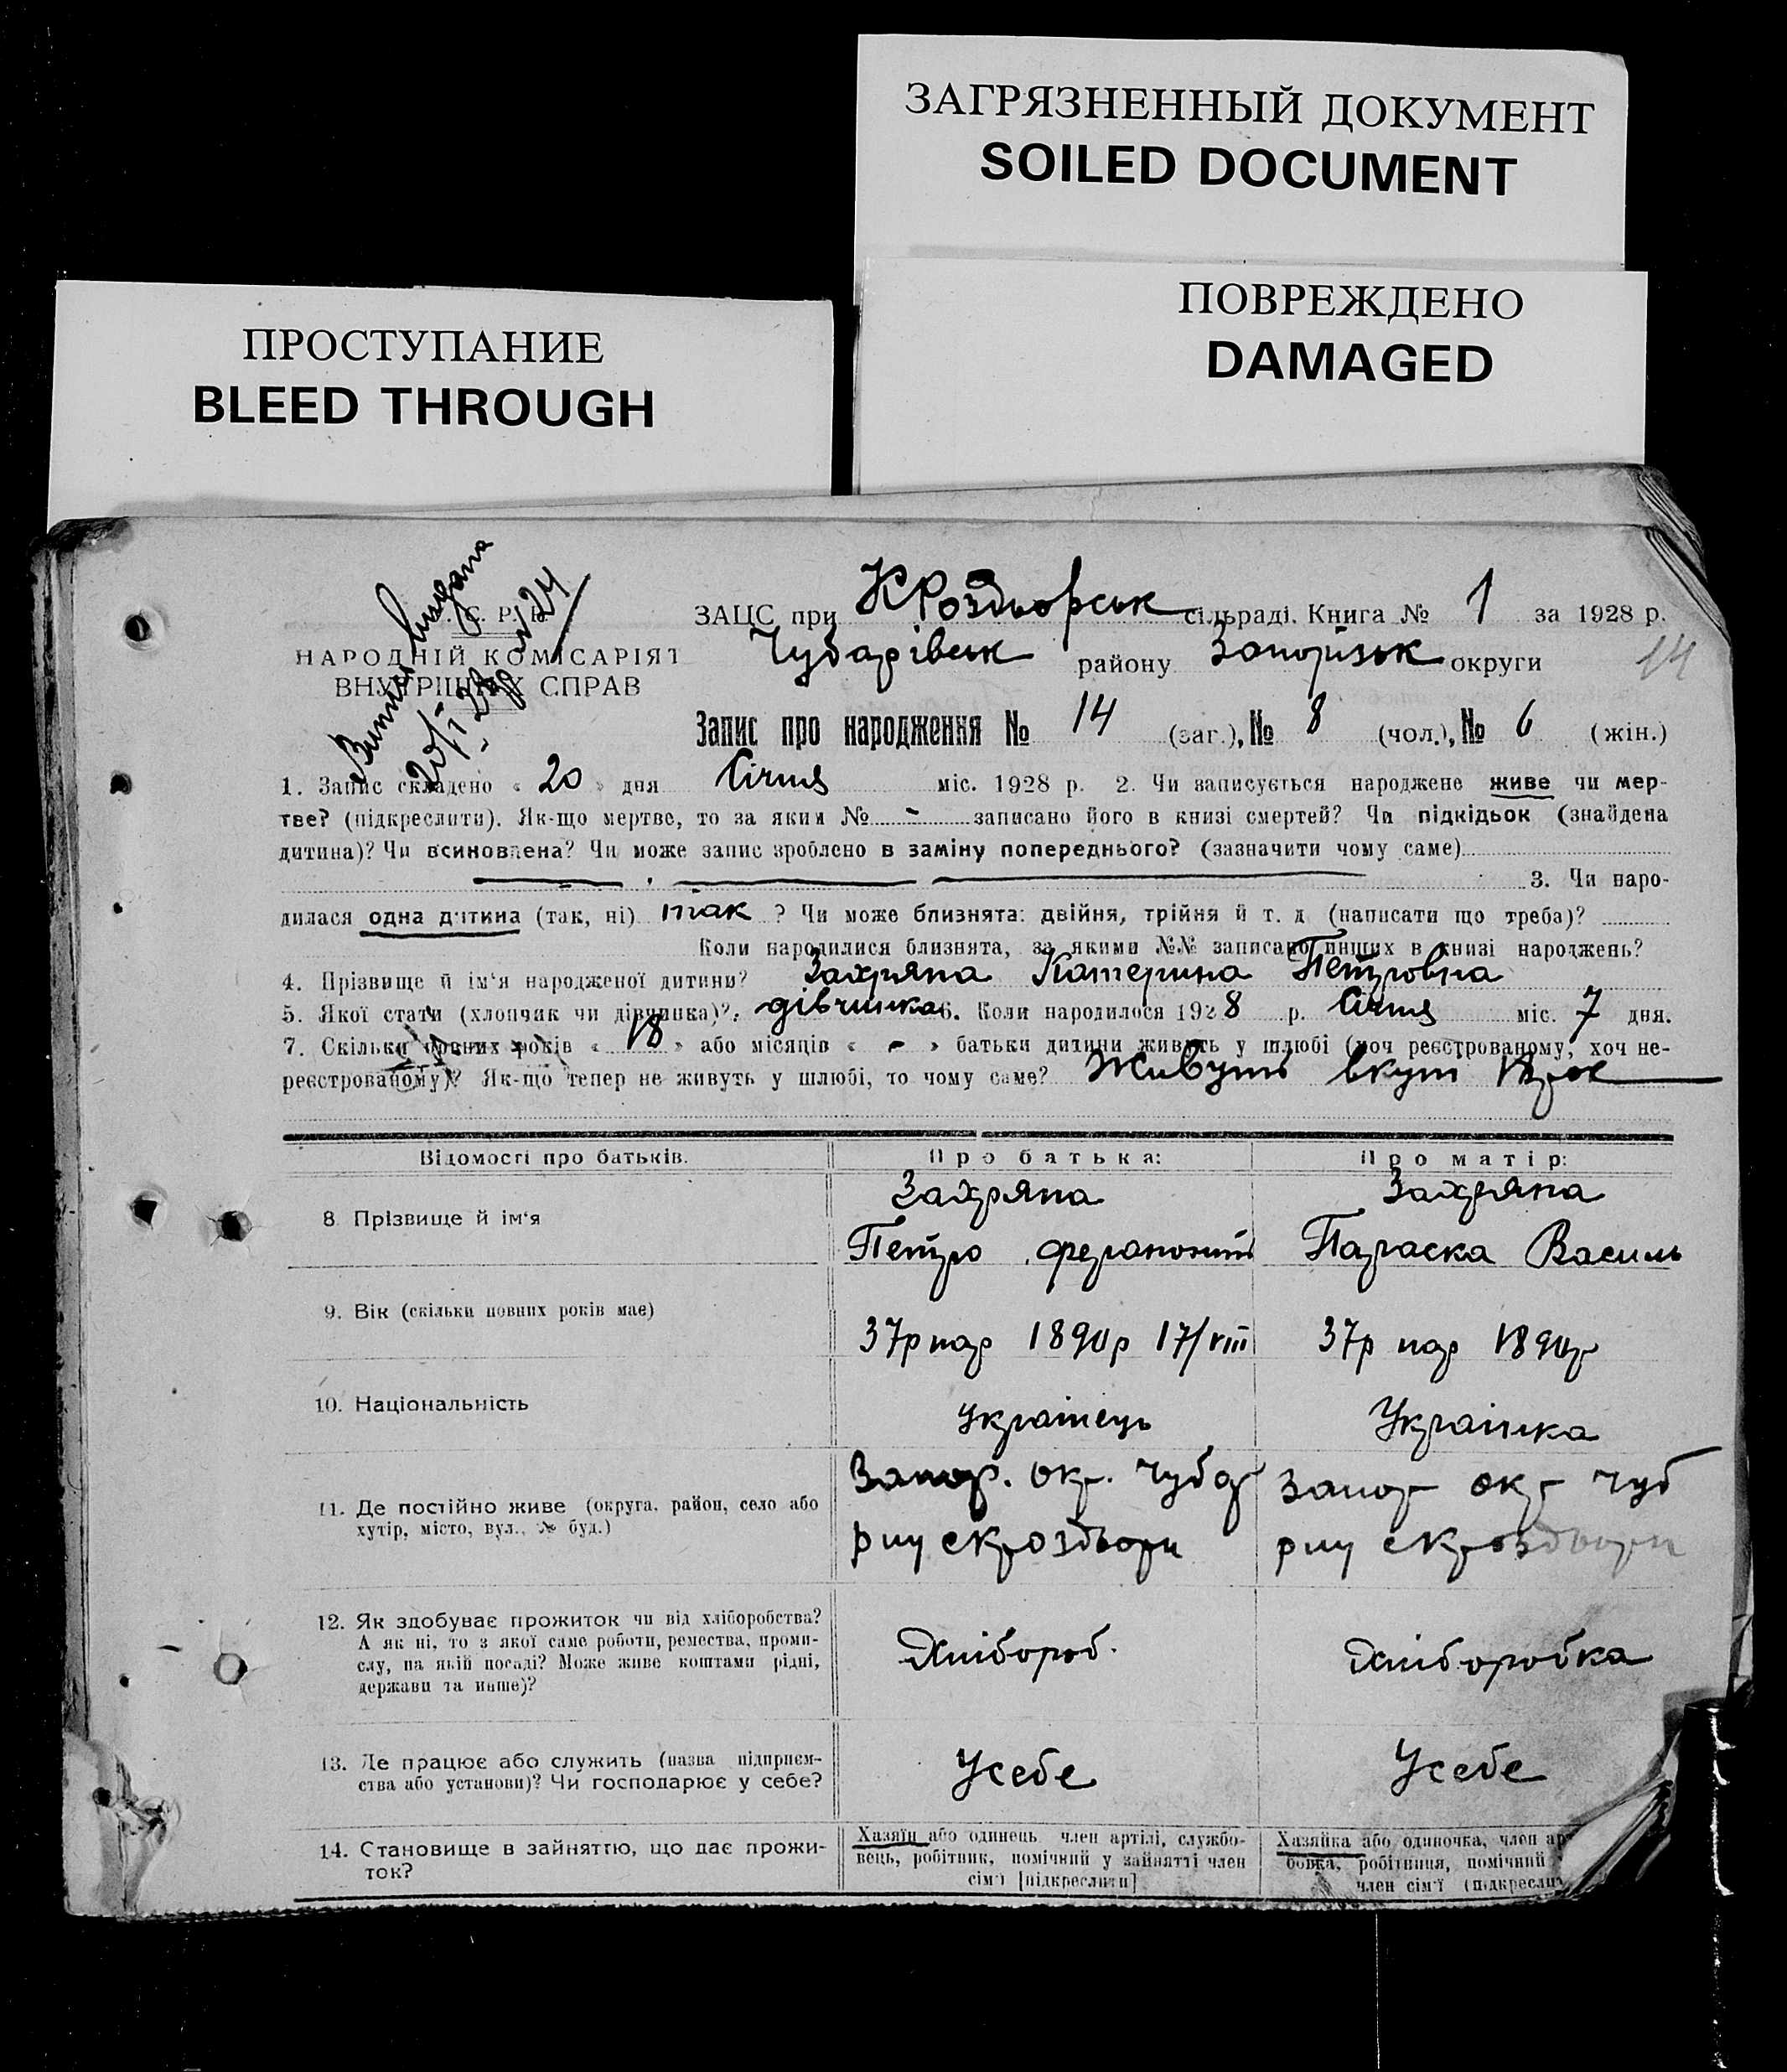 ЗАГРЯЗНЕННЫЙ ДОКУМЕНТ
SOILED DOCUMENT
ПОВРЕЖДЕНО
DAMAGED
ПРОСТУПАНИЕ
BLEED THROUGH
ЗАЦС при КРоздьорськ сільраді. Книга № 1 за 1928 р.
НАРОДНІЙ КОМІСАРІЯТ
Чубарівськ району Запорізьк округи 14
ВНУТРІШНІХ СПРАВ
Запис про народження № 14 (заг.), № 8 (чол.), № 6 (жін.)
1. Запис складено « 20 » дня Січня міс. 1928 р. 2. Чи записується народжене живе чи мер-
тве? (підкреслити). Як-що мертве, то за яким № - записано його в книзі смертей? Чи підкідьок (знайдена
дитина)? Чи всиновлена? Чи може запис зроблено в заміну попереднього? (зазначити чому саме)
3. Чи наро-
дилася одна дитина (так, ні) так ? Чи може близнята: двійня, трійня й т. д (написати що треба)?
Коли народилися близнята, за якими №№ записано инших в книзі народжень?
4. Прізвище й ім'я народженої дитини? Захряпа Катерина Петровна
5. Якої стати (хлопчик чи дівчинка)? дівчинка 6. Коли народилося 1928 р. Січня міс. 7 дня.
7. Скільки повних років « 18 » або місяців « - » батьки дитини живуть у шлюбі (хоч реєстрованому, хоч не-
реєстрованому)? Як-що тепер не живуть у шлюбі, то чому саме? Живуть вкупі 18 рок
Відомості про батьків. Про батька: Про матір:
8. Прізвище й ім'я
Захряпа
Петро
Захряпа
Параска Василь
9. Вік (скільки повних років має)
37р нар 1890р 17/VIII
37р нар 1890р
10. Національність
Українець
Українка
11. Де постійно живе (округа, район, село або
хутір, місто, вул., № буд.)
Запор. окр. Чубар
рну скроздьори
Запор окр чуб
рну скроздьори
12. Як здобуває прожиток чи від хліборобства?
А як ні, то з якої саме роботи, ремества, проми-
слу, на якій посаді? Може живе коштами рідні,
держави та инше)?
Хлібороб.
Хлібробка
13. Де працює або служить (назва підприєм-
ства або установи)? Чи господарює у себе?
Усебе
Усебе
14. Становище в зайняттю, що дає прожи-
ток?
Хазяїн або одинець член артілі, службо-
вець, робітник, помічний у зайнятті член
сім'ї [підкреслити]
Хазяйка або одиночка, член ар
бовка, робітниця, помічний
член сім'ї (підкресли